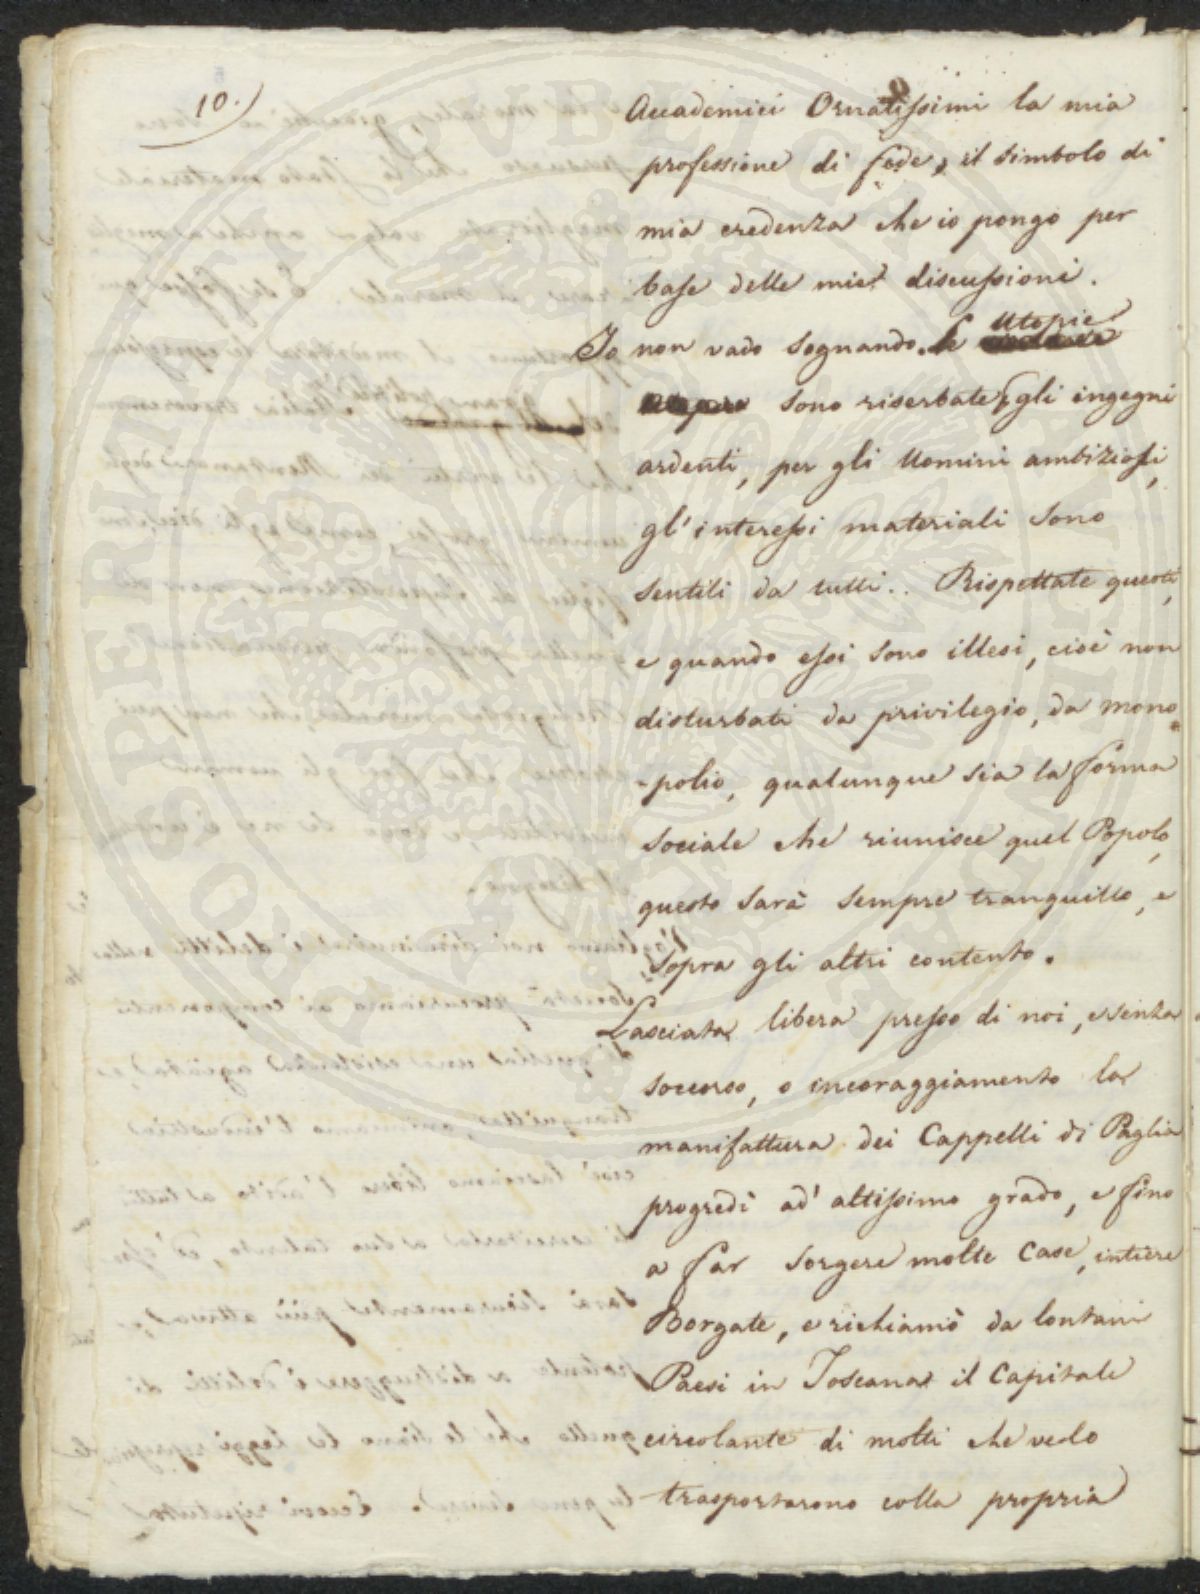 10.
Accademici Ornatissimi la mia
professione di fede, il simbolo di
mia credenza che io pongo per
base delle mie discussioni.
Io non vado sognando. Le Utopie
sono riserbate gli ingegni
ardenti, per gli Uomini ambiziosi,
gl'interessi materiali sono
sentiti da tutti.. Rispettate questi,
e quando essi sono illesi, cioè non
disturbati da privilegio, da mono=
-polio, qualunque sia la forma
sociale che riunisce quel Popolo,
questo sarà sempre tranquillo, e
sopra gli altri contento.
Lasciata libera presso di noi, e senza
soccorso, o incoraggiamento la
manifattura dei Cappelli di Paglia
progredì ad' altissimo grado, e fino
a far sorgere molte Case, intiere
Borgate, e richiamò da lontani
Paesi in Toscana il Capitale
circolante di molti che ve lo
trasportarono colla propria